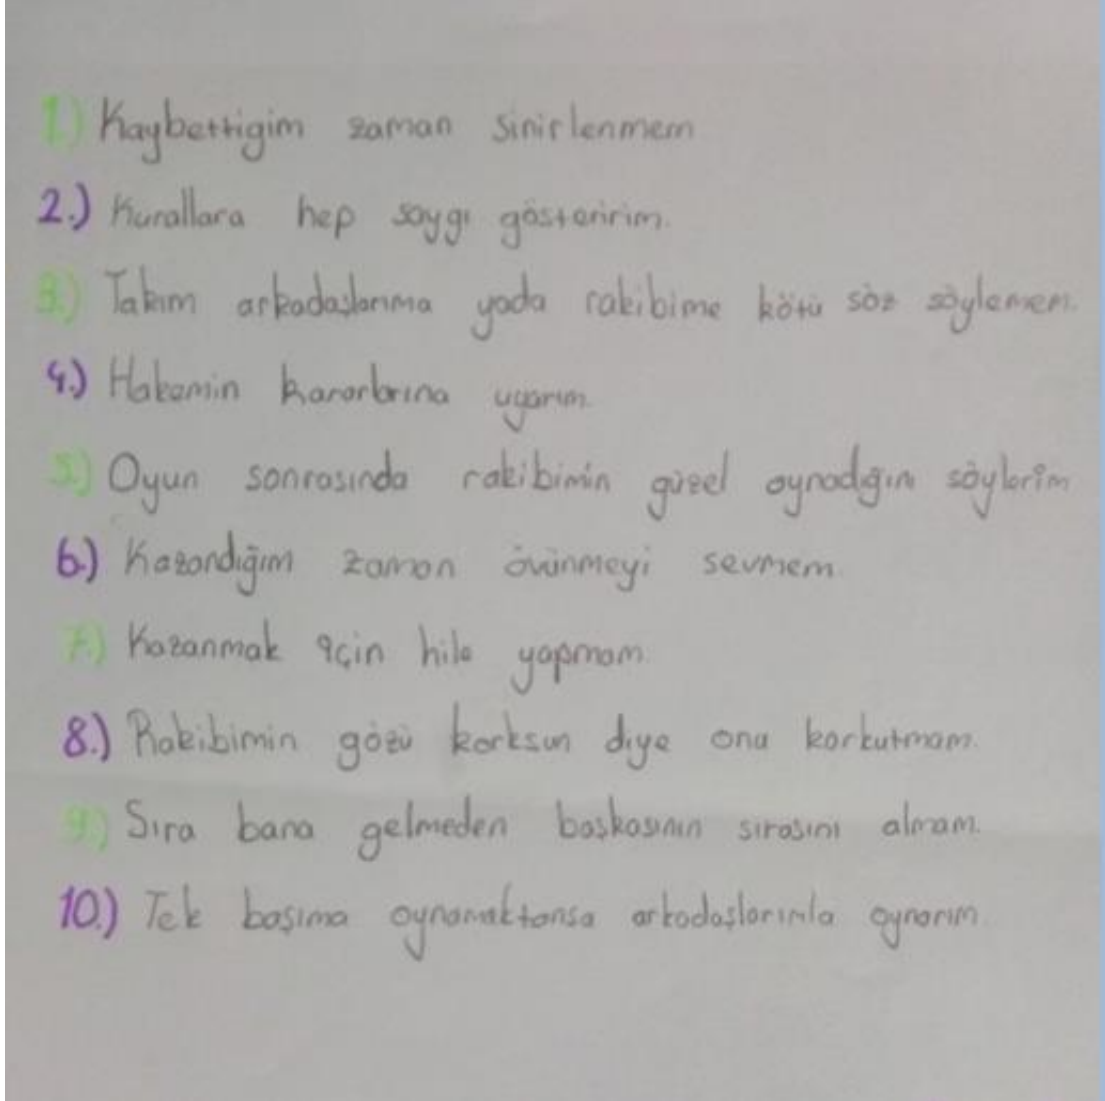 1.) Kaybettigim zaman sinirlenmem
2.) Kurallara hep saygı gösteririm.
3.) Takım arkadaşlarıma yada rakibime kötü söz söylemem.
4.) Hakemin kararlarına uyarım.
5.) Oyun sonrasında rakibimin güzel oynadığını söylerim
6.) Kazandığım zaman övünmeyi sevmem.
7.) Kazanmak için hile yapmam.
8.) Rakibimin gözü korksun diye onu korkutmam.
9.) Sıra bana gelmeden başkasının sırasını almam.
10.) Tek başıma oynamaktansa arkadaşlarımla oynarım.